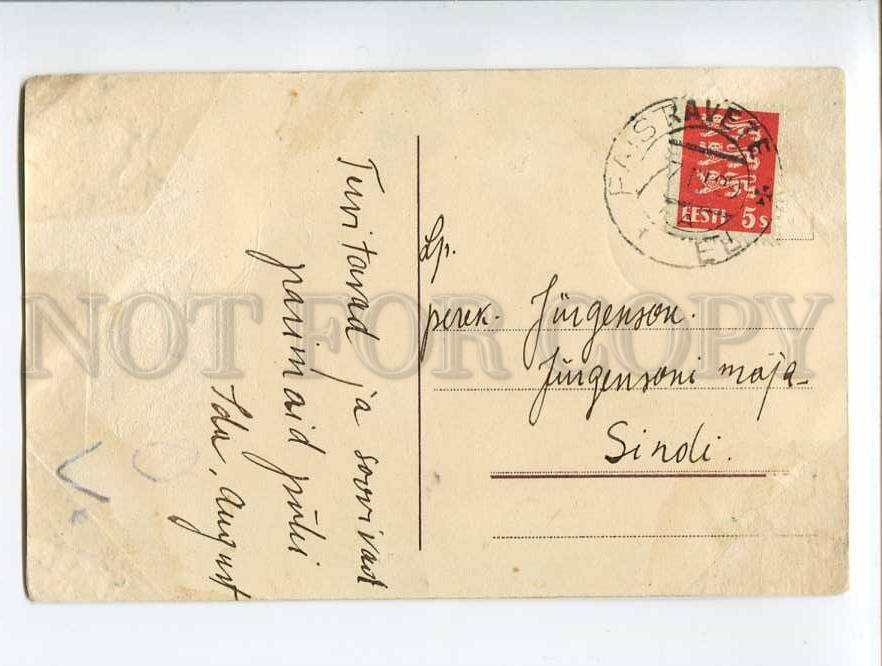 Tervitavad ja soovivad
parimaid pühi
Ida, August
Lp.
perek. Jürgenson.
Jürgensoni maja
Sindi.
EESTI 5 s
NOT FOR COPY